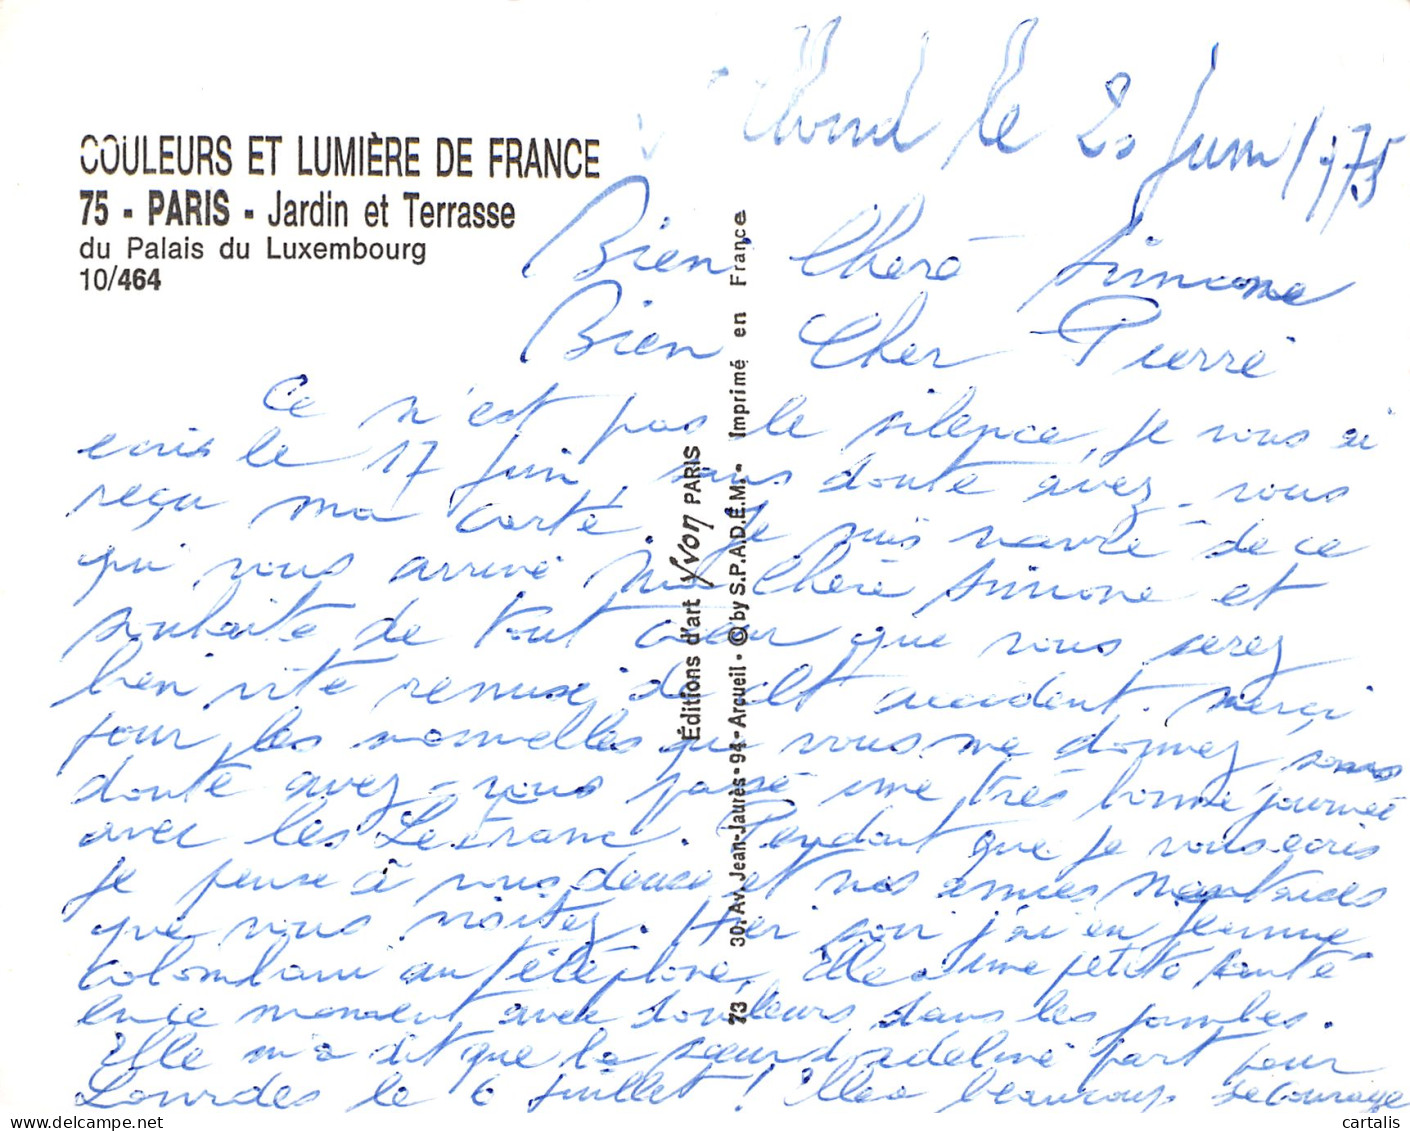 COULEURS ET LUMIÈRE DE FRANCE
75 - PARIS - Jardin et Terrasse
du Palais du Luxembourg
10/464
le 20 Juin 1975
Bien Chère Simone
Bien Cher Pierre
Ce n'est pas le silence, je vous ai
écris le 17 Juin, sans doute avez-vous
reçu ma carte. Je suis navré de ce
qui vous arrive Ma Chère Simone et
souhaite de tout cœur que vous serez
bien vite remise de cet accident. Merci
pour les nouvelles que vous me donnez, sans
doute avez-vous passé une très bonne journée
avec les Lefranc. Pendant que je vous écris
je pense à vous deux et nos amies Nantaises
que vous visitez. Hier soir j'ai eu Jeanne
Colomban au téléphone, Elle a une petite santé
en ce moment avec douleurs dans les jambes.
Elle m'a dit que la sœur d'Adeline part pour
Lourdes le 6 Juillet ! Elle a beaucoup de courage
Éditions d'art Yvon PARIS
30, Av. Jean-Jaurès - 94 - Arcueil - © by S.P.A.D.E.M. - Imprimé en France
73
cartalis